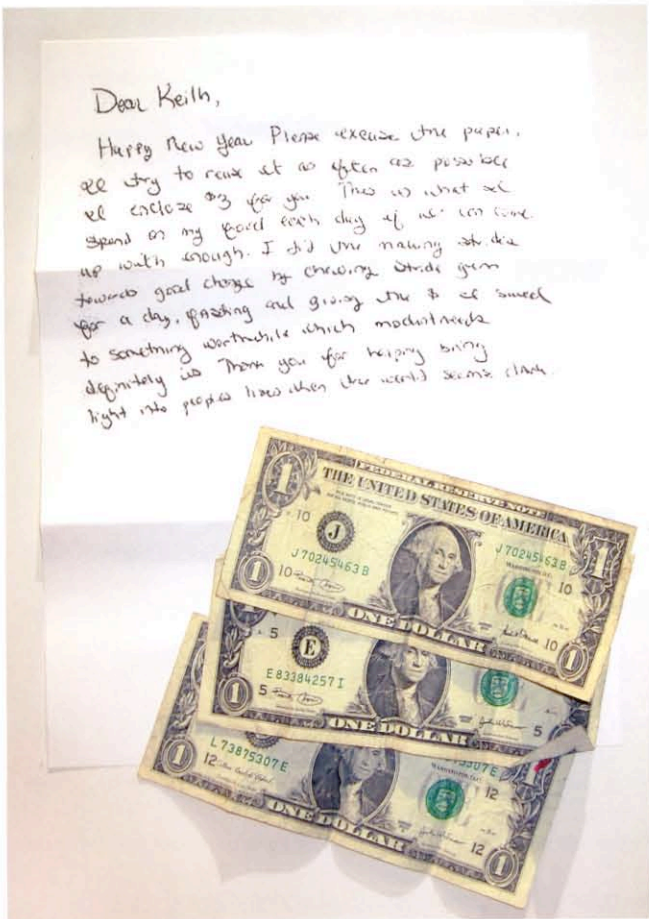 Dear Keith,
Happy New Year Please excuse the paper.
I try to reuse it as often as possible
I enclose $3 for you. This is what I
spend on my food each day if we can come
up with enough. I did the making strides
towards good change by chewing stride gum
for a day, fasting and giving the $ I saved
to something worthwhile which
definitely is Thank you for helping bring
light into peoples lives when the world seems dark.
FEDERAL RESERVE NOTE
THE UNITED STATES OF AMERICA
10
J
J 70245463 B
J 70245463 B
WASHINGTON, D.C.
10
10
10
1
1
1
1
ONE DOLLAR
5
E
E 83384257 I
5
5
1
1
ONE DOLLAR
L 73875307 E
75307 E
WASHINGTON, D.C.
12
12
12
1
1
1
ONE DOLLAR